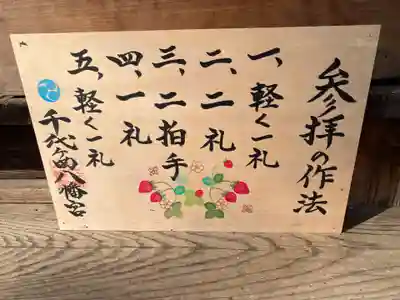 参拝の作法
一、軽く一礼
二、二礼
三、二拍手
四、一礼
五、軽く一礼
千代ヶ岡八幡宮